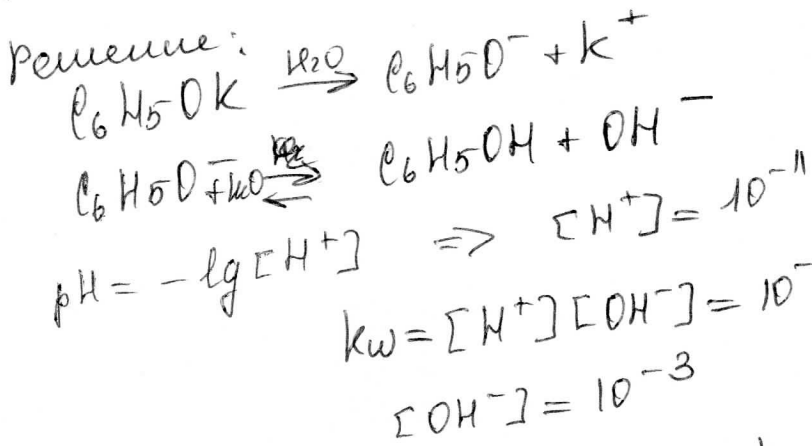 Решение:
C₆H5OK \xrightarrow{H₂O} C₆H5O⁻ + K⁺
C₆H5O⁻ + H₂O ⇄ C₆H5OH + OH⁻
pH = - lg [H⁺] => [H⁺] = 10⁻¹¹
Kw = [H⁺][OH⁻] = 10⁻
[OH⁻] = 10⁻³